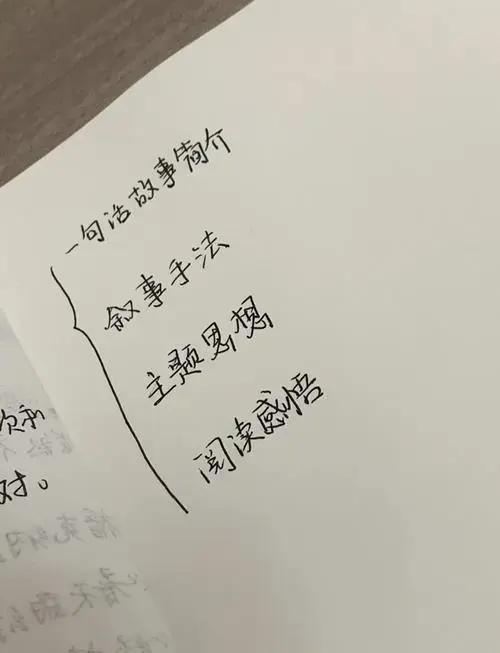 一句话故事简介
叙事手法
主题思想
阅读感悟
对。